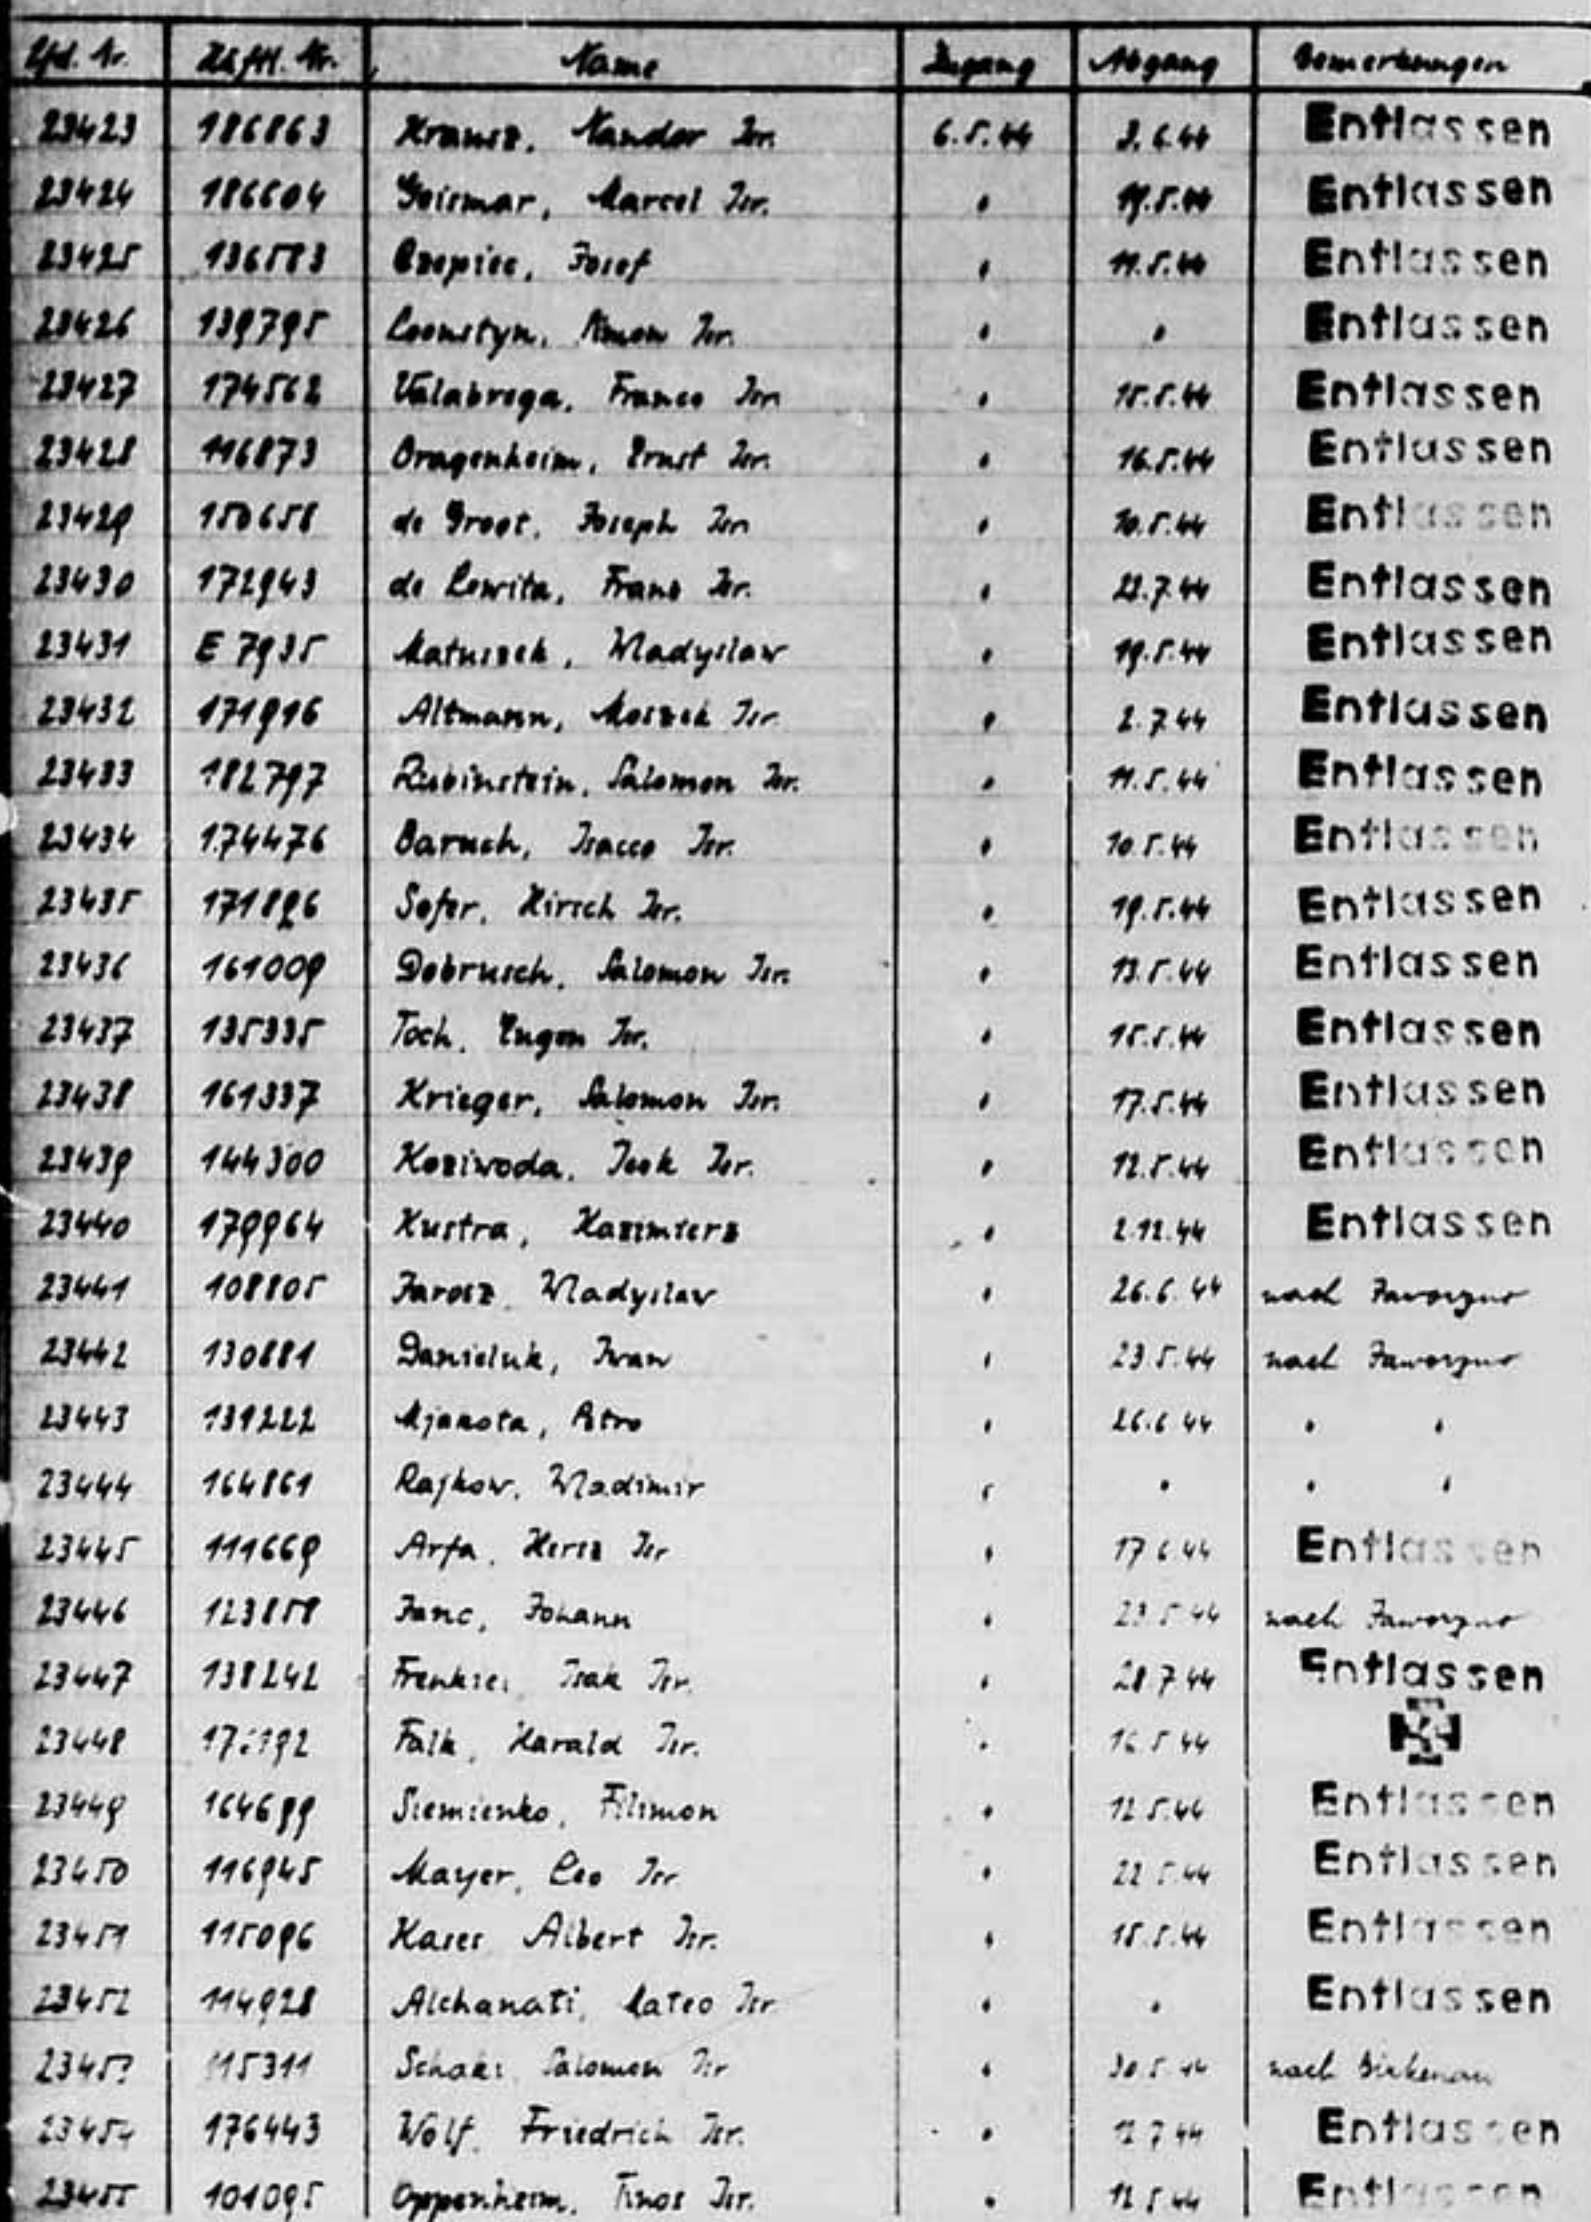 Lfd. Nr. Häftl. Nr. Name Zugang Abgang Bemerkungen
23423 186863 Krausz, Nandor Isr. 6.5.44 3.6.44 Entlassen
23424 186604 Geismar, Marcel Isr. " 19.5.44 Entlassen
23425 136583 Czepiec, Josef " 11.5.44 Entlassen
23426 139795 Loonstyn, Simon Isr. " " Entlassen
23427 174562 Valabrega, Franco Isr. " 15.5.44 Entlassen
23428 116873 Dragenheim, Ernst Isr. " 16.5.44 Entlassen
23429 150658 de Groot, Joseph Isr. " 10.5.44 Entlassen
23430 172943 de Lewita, Frans Isr. " 22.7.44 Entlassen
23431 E 7935 Matuszek, Wladyslaw " 19.5.44 Entlassen
23432 171916 Altmann, Moszek Isr. " 2.7.44 Entlassen
23433 182797 Rubinstein, Salomon Isr. " 11.5.44 Entlassen
23434 174476 Baruch, Isacco Isr. " 10.5.44 Entlassen
23435 171896 Sofer, Hirsch Isr. " 19.5.44 Entlassen
23436 161009 Dobrusch, Salomon Isr. " 13.5.44 Entlassen
23437 135335 Toch, Eugen Isr. " 15.5.44 Entlassen
23438 161337 Krieger, Salomon Isr. " 17.5.44 Entlassen
23439 144300 Koziwoda, Icek Isr. " 12.5.44 Entlassen
23440 179964 Kustra, Kazimierz " 2.12.44 Entlassen
23441 108805 Jarosz, Wladyslaw " 26.6.44 nach Jaworzno
23442 130881 Danieluk, Iwan " 23.5.44 nach Jaworzno
23443 131222 Mjakota, Petro " 26.6.44 " "
23444 164861 Rajkow, Wladimir " " " "
23445 111669 Arfa, Hersz Isr. " 17.6.44 Entlassen
23446 123858 Janc, Johann " 23.5.44 nach Jaworzno
23447 138242 Isak Isr. " 28.7.44 Entlassen
23448 Falk, Harald Isr. " 16.5.44
23449 164699 Siemienko, Filimon " 12.5.44 Entlassen
23450 116945 Mayer, Leo Isr. " 22.5.44 Entlassen
23451 115096 Albert Isr. " 15.5.44 Entlassen
23452 114928 Alchanati, Mateo Isr. " " Entlassen
115311 Salomon Isr. " 30.5.44 nach Birkenau
23454 176443 Wolf, Friedrich Isr. " 12.7.44 Entlassen
23455 101095 Oppenheim, Isr. " 12.5.44 Entlassen